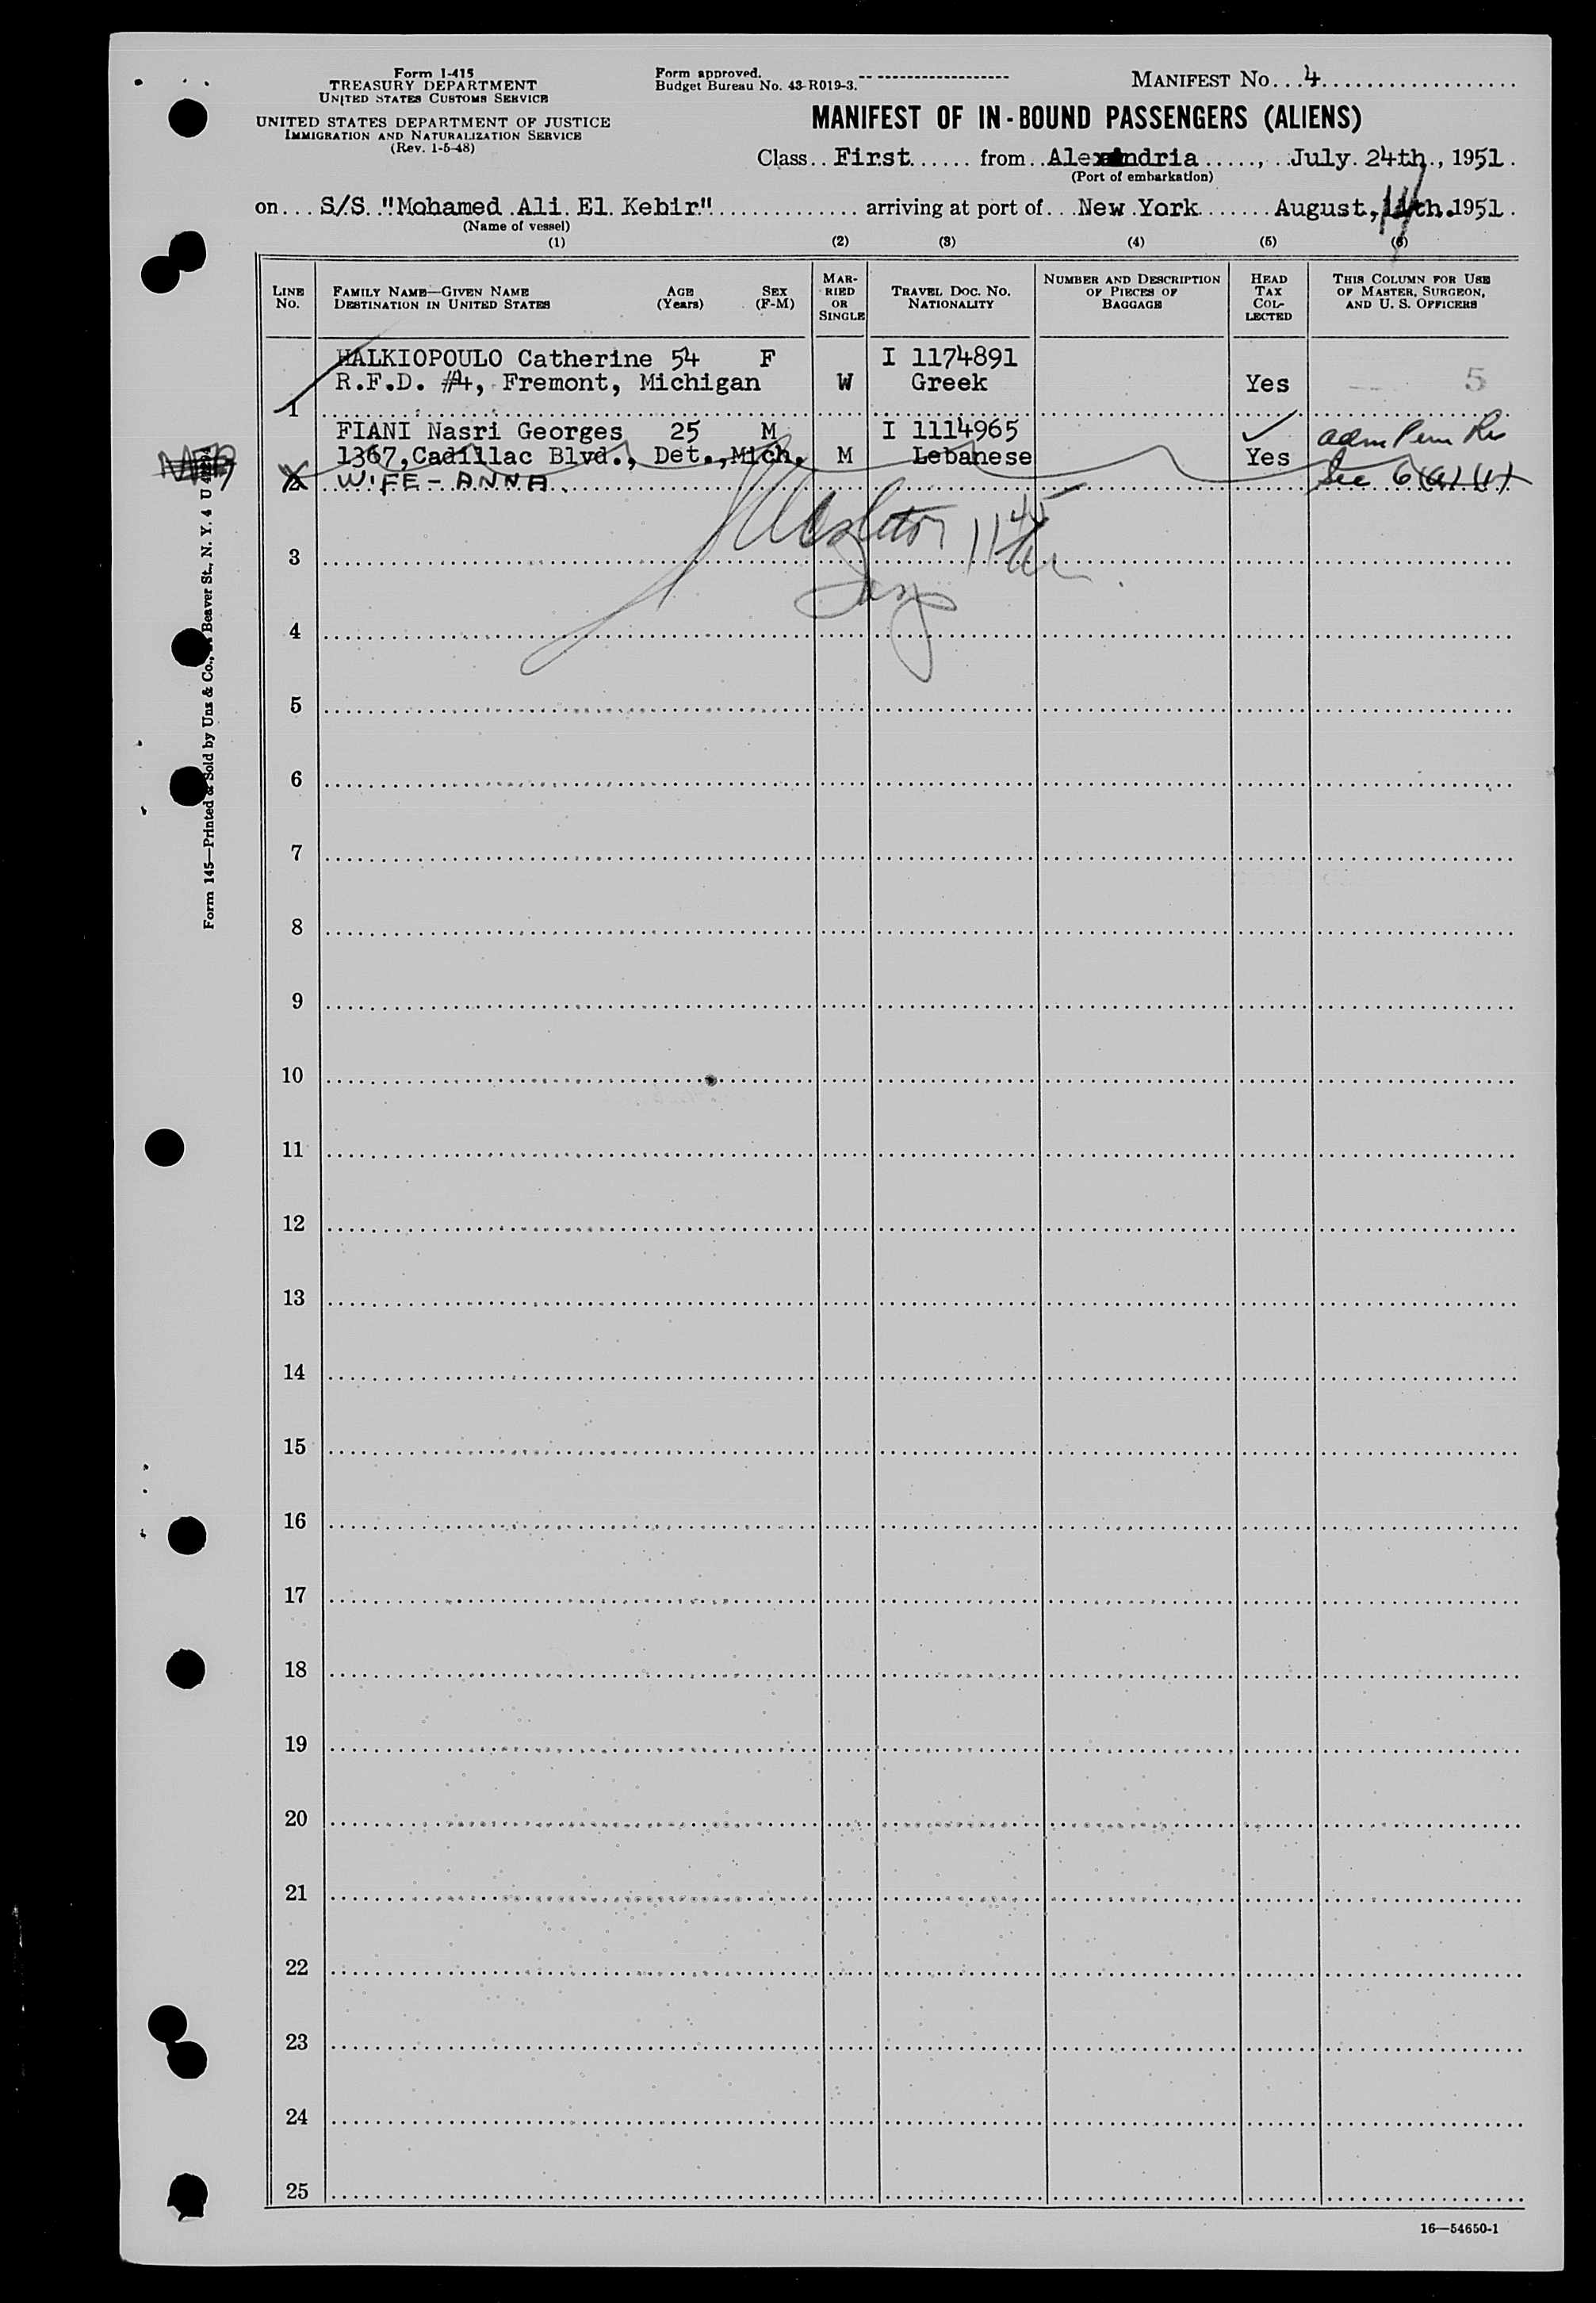 Form I-415
TREASURY DEPARTMENT
UNITED STATES CUSTOMS SERVICE
UNITED STATES DEPARTMENT OF JUSTICE
IMMIGRATION AND NATURALIZATION SERVICE
(Rev. 1-5-48)
Form approved.
Budget Bureau No. 43-R019-3.
MANIFEST NO. 4
MANIFEST OF IN-BOUND PASSENGERS (ALIENS)
Class First from Alexandria, July 24th, 1951.
(Port of embarkation)
on S/S "Mohamed Ali El Kebir" arriving at port of New York August, 1951.
(Name of vessel)
(1) (2) (3) (4) (5) (6)
LINE NO.
FAMILY NAME—GIVEN NAME AGE SEX
DESTINATION IN UNITED STATES (Years) (F-M)
MAR-
RIED
OR
SINGLE
TRAVEL DOC. NO.
NATIONALITY
NUMBER AND DESCRIPTION
OF PIECES OF
BAGGAGE
HEAD
TAX
COL-
LECTED
THIS COLUMN FOR USE
OF MASTER, SURGEON,
AND U. S. OFFICERS
HALKIOPOULO Catherine 54 F I 1174891
R.F.D. #4, Fremont, Michigan W Greek Yes 5
1
FIANI Nasri Georges 25 M I 1114965
1367, Cadillac Blvd., Det., Mich. M Lebanese Yes
WIFE - ANNA
3
4
5
6
7
8
9
10
11
12
13
14
15
16
17
18
19
20
21
22
23
24
25
16—54650-1
Form 145—Printed & Sold by Unz & Co., Beaver St., N. Y. 4